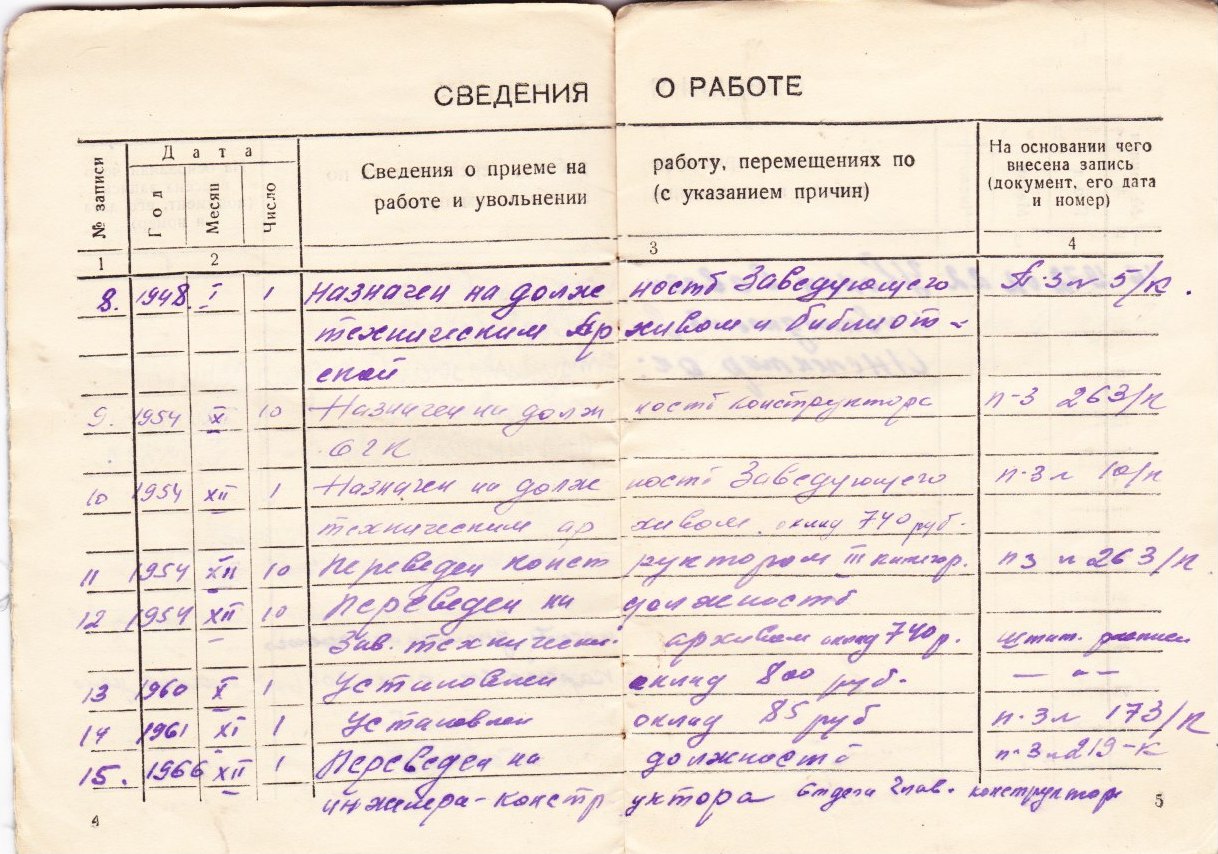 СВЕДЕНИЯ О РАБОТЕ
№ записи
Дата
Год
Месяц
Число
Сведения о приеме на работу, перемещениях по
работе и увольнении (с указанием причин)
На основании чего
внесена запись
(документ, его дата
и номер)
1 2 3 4
8. 1948. I 1 Назначен на должность Заведующего 5/к.
техническим Архивом и библиот-
екой
9. 1954 XI 10 Назначен на должность конструктора п-з 263/к
ОГК
10 1954 XII 1 Назначен на должность Заведующего 10/к
техническим архивом. оклад 740 руб.
11 1954 XII 10 Переведен конструктором III категор. пз 263/к
12 1954 XII 10 Переведен на должность
Зав. технически. архивом оклад 740 р. штат.
13 1960 X 1 Установлен оклад 800 руб. — " —
14 1961 XI 1 Установлен оклад 85 руб 173/к
15. 1966 XII 1 Переведен на должность 219-к
инженера-конструктора отдела глав. конструктора
4 5